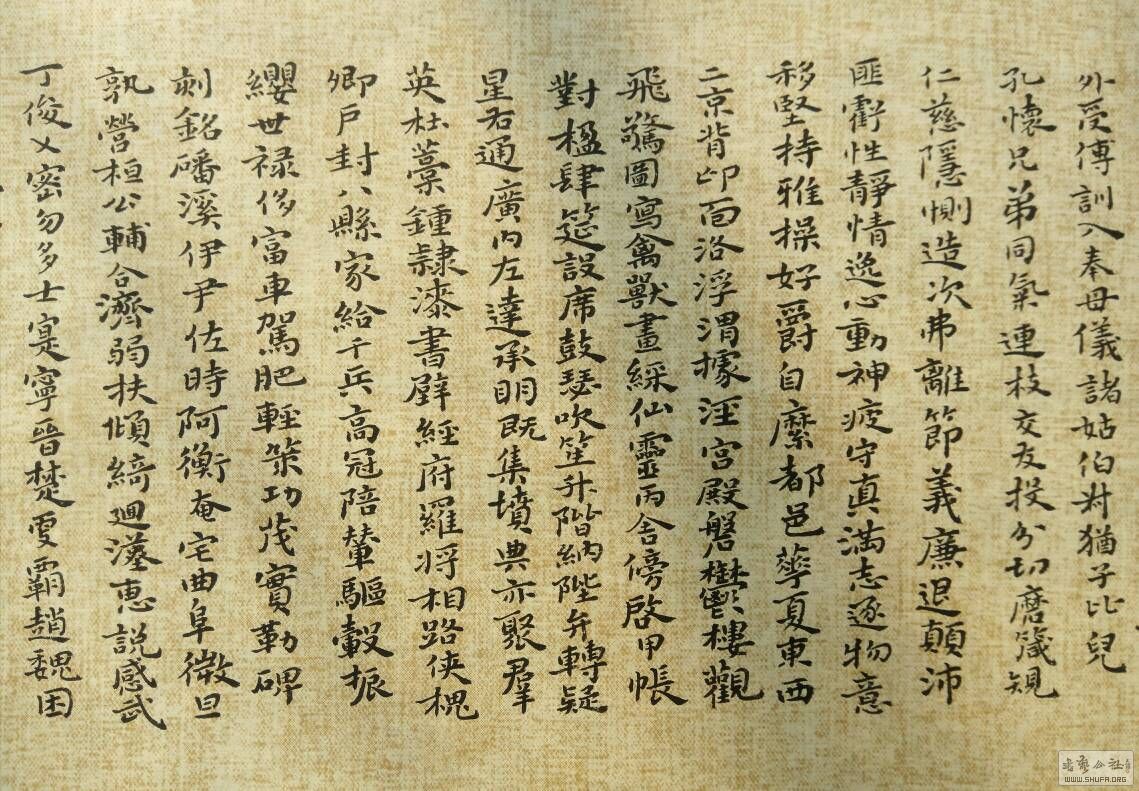 外受傅訓入奉母儀諸姑伯叔猶子比兒
孔懷兄弟同氣連枝交友投分切磨箴規
仁慈隱惻造次弗離節義廉退顛沛
匪虧性靜情逸心動神疲守真滿志逐物意
移堅持雅操好爵自縻都邑華夏東西
二京背邙面洛浮渭據涇宮殿磐鬱樓觀
飛驚圖寫禽獸畫綵仙靈丙舍傍啓甲帳
對楹肆筵設席鼓瑟吹笙升階納陛弁轉疑
星右通廣內左達承明既集墳典亦聚羣
英杜藁鍾隸漆書壁經府羅將相路俠槐
卿户封八縣家給千兵高冠陪輦驅轂振
纓世禄侈富車駕肥輕策功茂實勒碑
刻銘磻溪伊尹佐時阿衡奄宅曲阜微旦
孰營桓公輔合濟弱扶傾綺迴漢惠説感武
丁俊乂密勿多士寔寧晉楚更霸趙魏困
書法公社
WWW.SHUFA.ORG